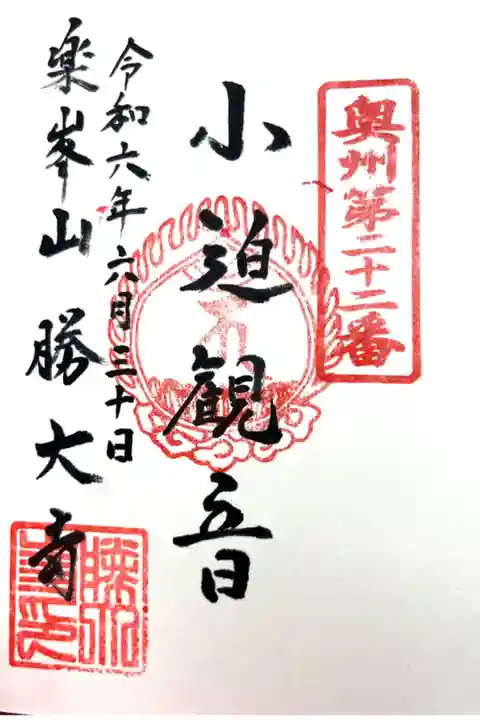 奥州第二十二番
小迫観音
令和六年六月三十日
楽峯山 勝大寺
勝大寺印